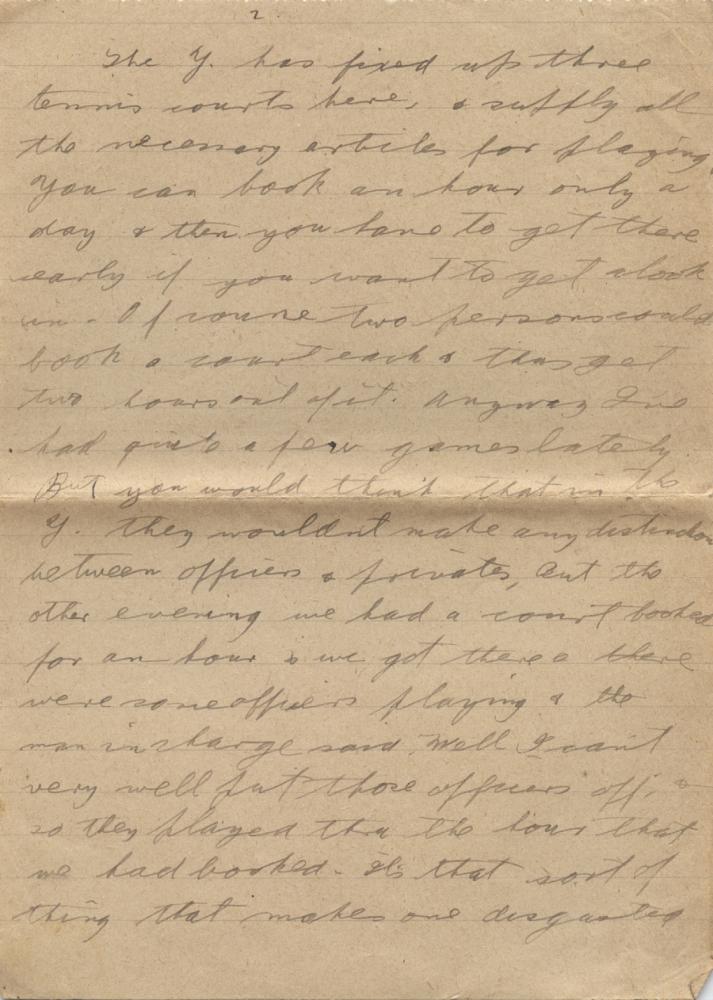 2
The Y. has fixed up three
tennis courts here, & supply all
the necessary articles for playing.
You can book an hour only a
day & then you have to get there
early if you want to get a look
in. Of course two persons could
book a court each & thus get
two hours out of it. Anyway I've
had quite a few games lately
But you would think that in the
Y. they wouldn't make any distinction
between officers & privates, But the
other evening we had a court booked
for an hour & we got there & there
were some officers playing & the
man in charge said, Well I can't
very well put those officers off, &
so they played thru the hour that
we had booked. It's that sort of
thing that makes one disgusted